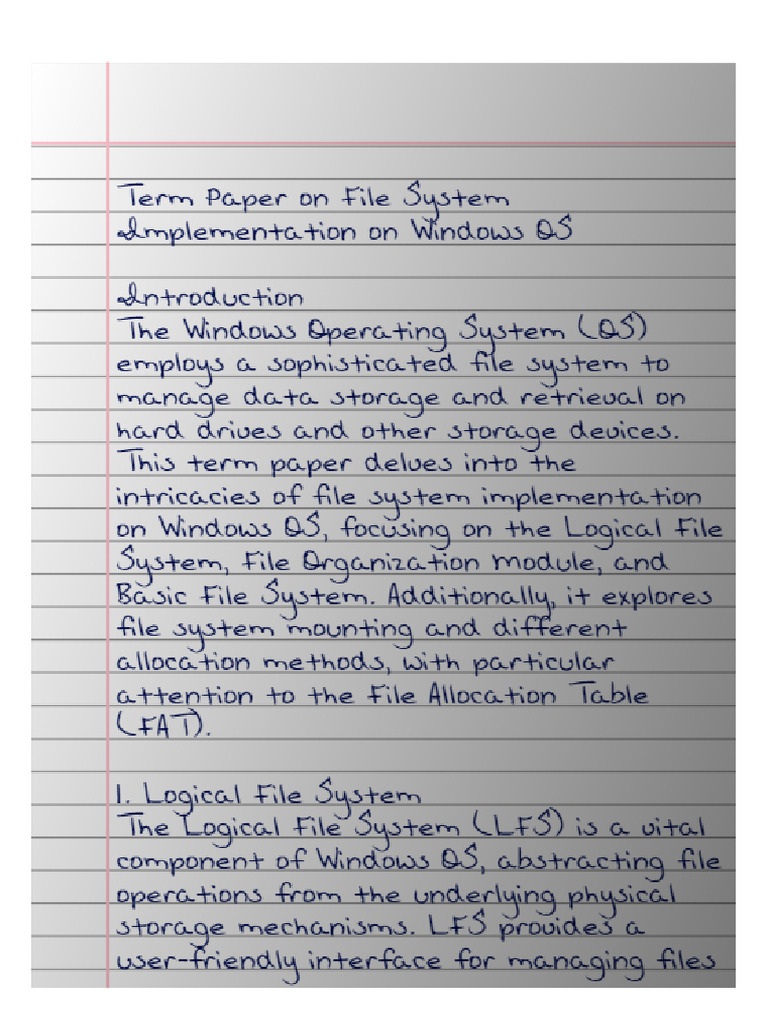 Term Paper on File System
Implementation on Windows OS
Introduction
The Windows Operating System (OS)
employs a sophisticated file system to
manage data storage and retrieval on
hard drives and other storage devices.
This term paper delves into the
intricacies of file system implementation
on Windows OS, focusing on the Logical File
System, File Organization module, and
Basic File System. Additionally, it explores
file system mounting and different
allocation methods, with particular
attention to the File Allocation Table
(FAT).
1. Logical File System
The Logical File System (LFS) is a vital
component of Windows OS, abstracting file
operations from the underlying physical
storage mechanisms. LFS provides a
user-friendly interface for managing files